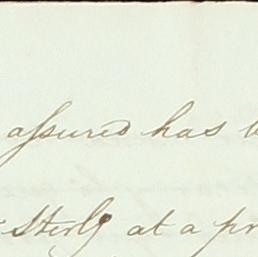 assured has
Sterlg at a